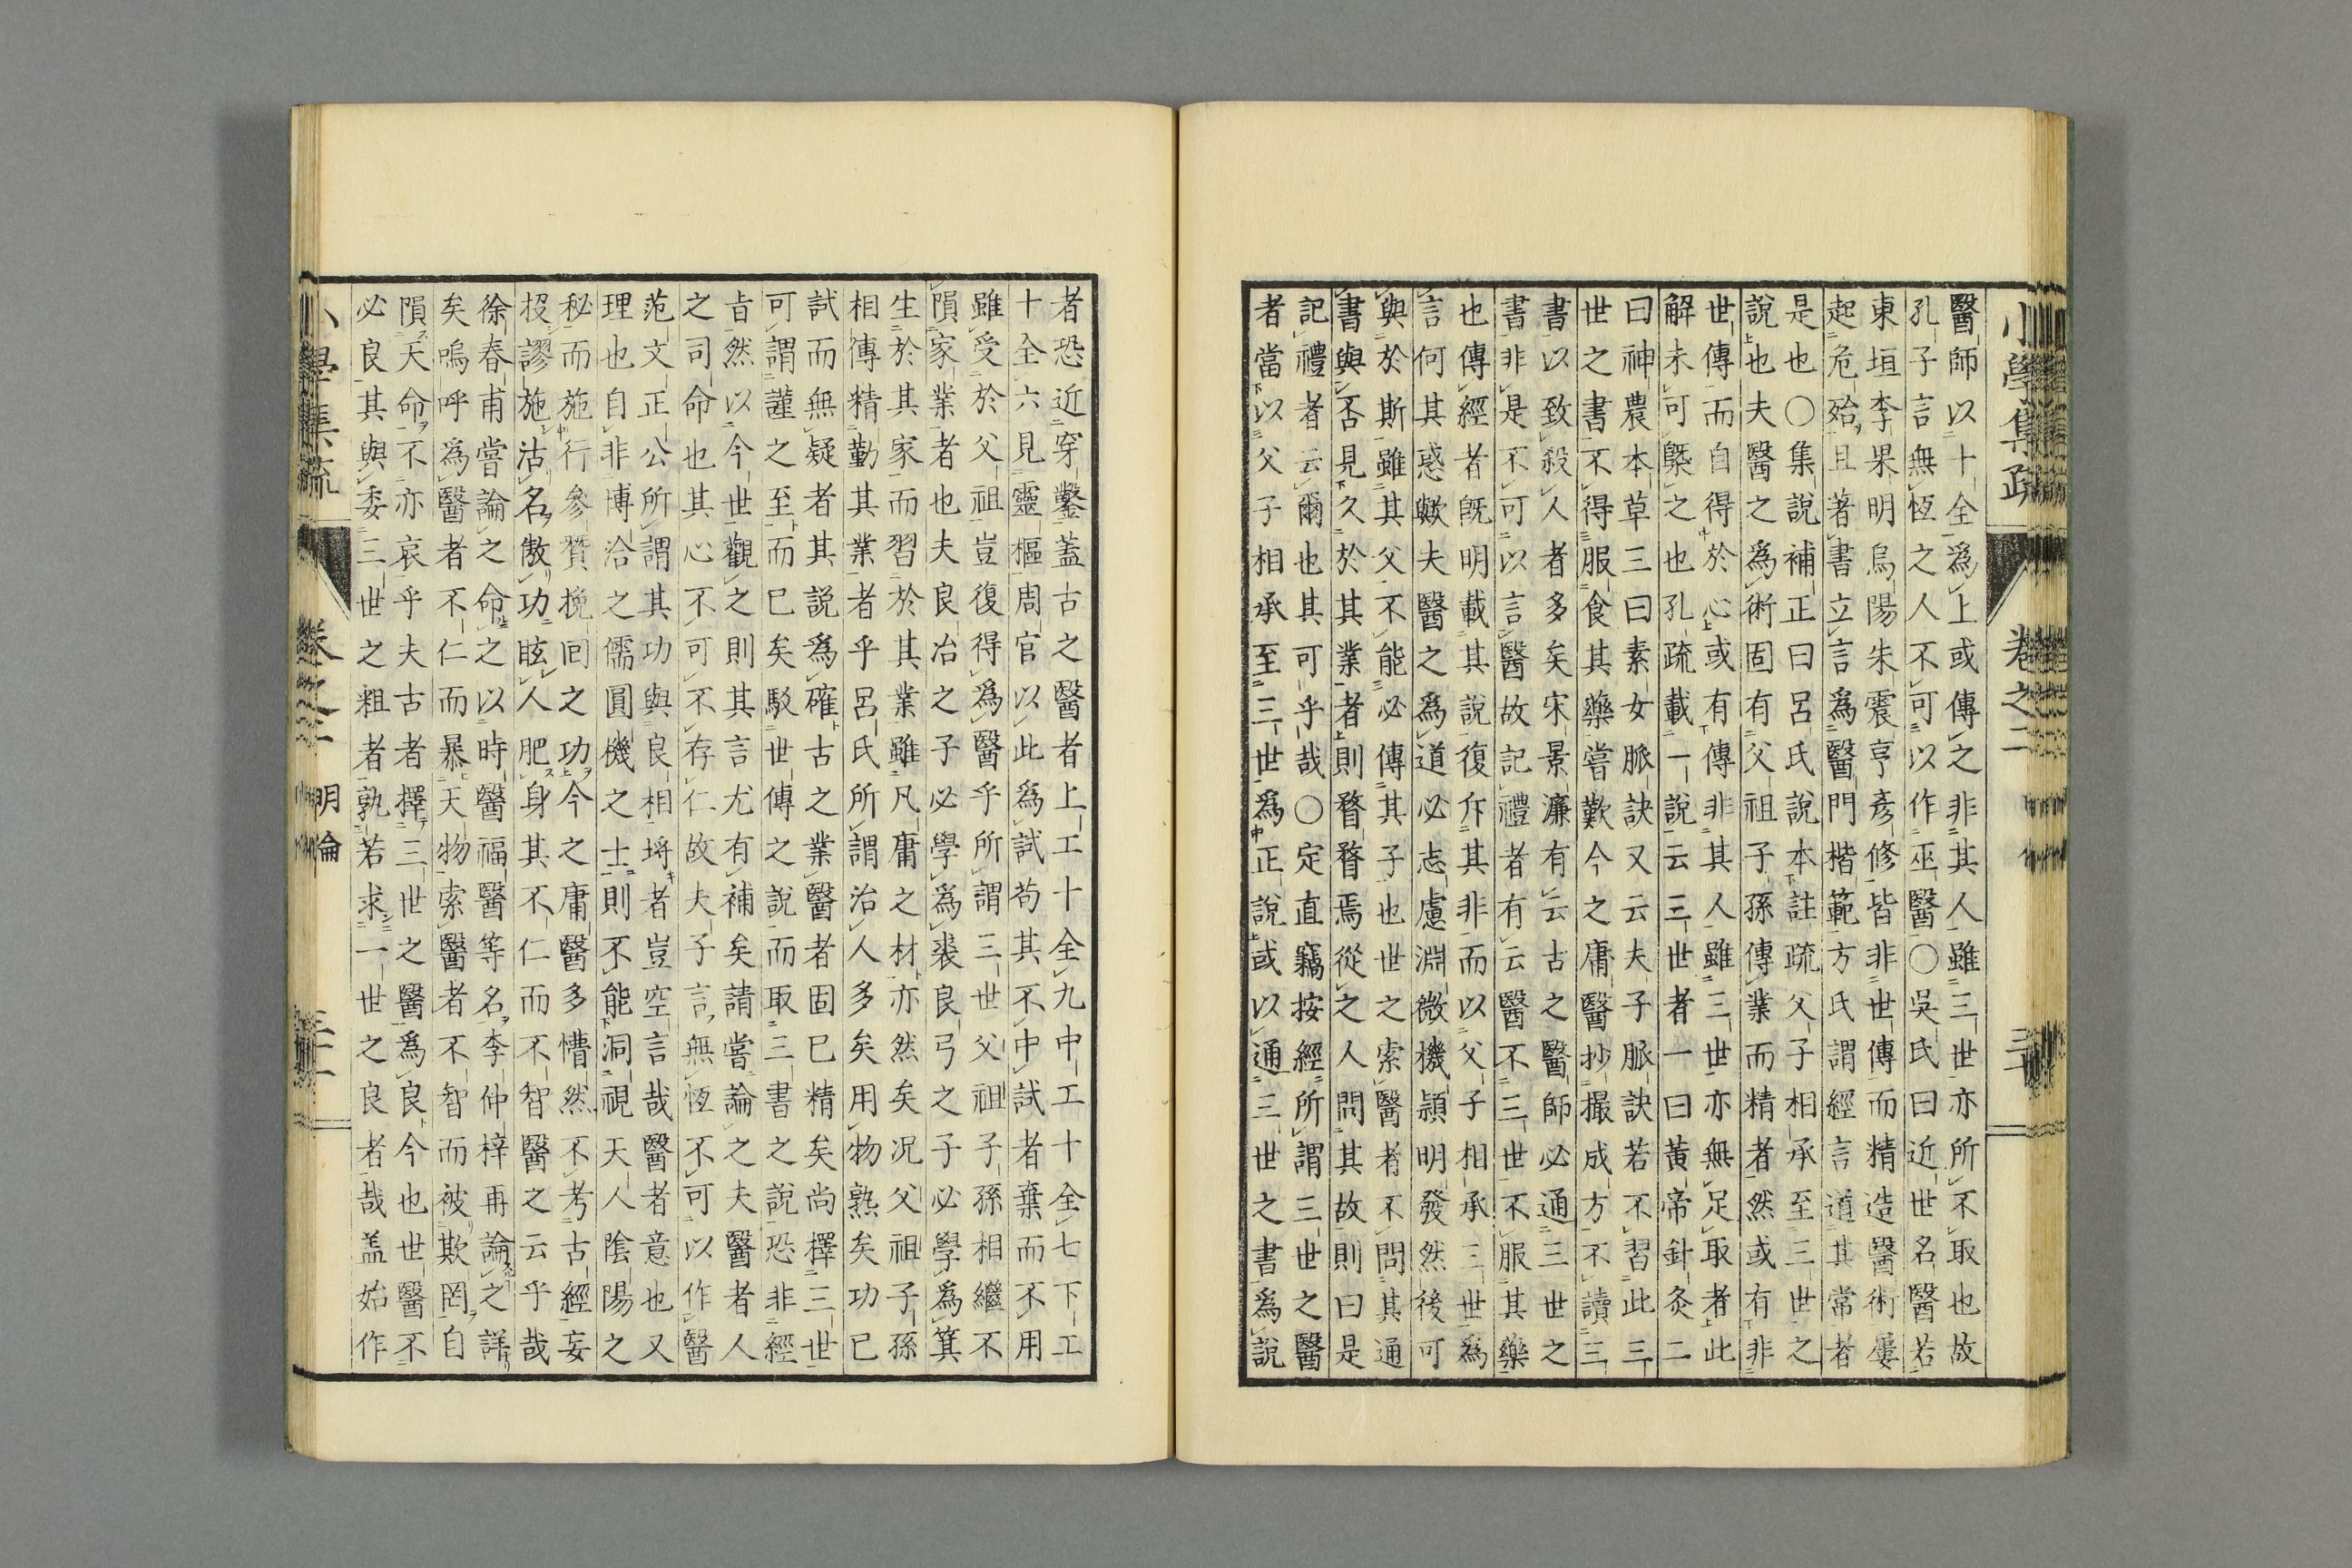 小學集疏 卷之二 三
醫師以十全爲上或傳之非其人雖三世亦所不取也故
孔子言無恆之人不可以作巫醫〇吳氏曰近世名醫若
東垣李果明烏陽朱震亨彥修皆非世傳而精造醫術屢
起危殆且著書立言爲醫門楷範方氏謂經言道其常者
是也〇集說補正曰呂氏說本註疏父子相承至三世之
說也夫醫之爲術固有父祖子孫傳業而精者然或有非
世傳而自得於心或有傳非其人雖三世亦無足取者此
解未可槩之也孔疏載一說云三世者一曰黃帝針灸二
曰神農本草三曰素女脈訣又云夫子脈訣若不習此三
世之書不得服食其藥嘗歎今之庸醫抄撮成方不讀三
書以致殺人者多矣宋景濂有云古之醫師必通三世之
書非是不可以言醫故記禮者有云醫不三世不服其藥
也傳經者旣明載其說復斥其非而以父子相承三世爲
言何其惑歟夫醫之爲道必志慮淵微機頴明發然後可
與於斯雖其父不能必傳其子也世之索醫者不問其通
書與否見久於其業者則瞀瞀焉從之人問其故則曰是
記禮者云爾也其可乎哉〇定直竊按經所謂三世之醫
者當以父子相承至三世爲正說或以通三世之書爲說
者恐近穿鑿蓋古之醫者上工十全九中工十全七下工
十全六見靈樞周官以此爲試苟其不中試者棄而不用
雖受於父祖豈復得爲醫乎所謂三世父祖子孫相繼不
隕家業者也夫良冶之子必學爲裘良弓之子必學爲箕
生於其家而習於其業雖凡庸之材亦然矣况父祖子孫
相傳精勤其業者乎呂氏所謂治人多矣用物熟矣功已
試而無疑者其説爲確古之業醫者固已精矣尚擇三世
可謂謹之至而已矣駁世傳之說而取三書之說恐非經
㫖然以今世觀之則其言尤有補矣請嘗論之夫醫者人
之司命也其心不可不存仁故夫子言無恆不可以作醫
范文正公所謂其功與良相埒者豈空言哉醫者意也又
理也自非博洽之儒圓機之士則不能洞視天人陰陽之
秘而施行參贊挽回之功今之庸醫多慒然不考古經妄
投謬施沽名傲功眩人肥身其不仁而不智醫之云乎哉
徐春甫嘗論之命之以時醫福醫等名李仲梓再論之詳
矣嗚呼爲醫者不仁而暴天物索醫者不智而被欺罔自
隕天命不亦哀乎夫古者擇三世之醫爲良今也世醫不
必良其與委三世之粗者孰若求一世之良者哉盖始作
小學集疏 卷之二 明倫